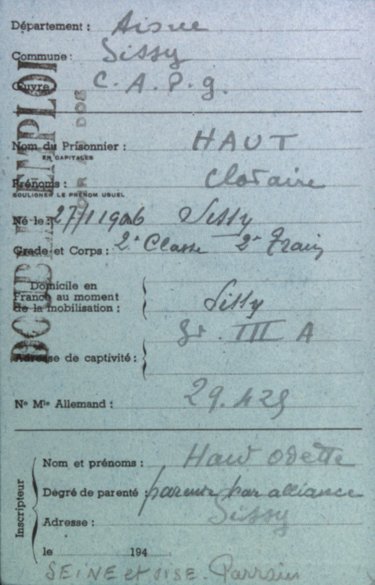 Département : Aisne
Commune : Sissy
Œuvre : C. A. P. g.
DOUBLE EMPLOI
Nom du Prisonnier : HAUT
EN CAPITALES
Prénoms : Clotaire
SOULIGNER LE PRÉNOM USUEL
Né le : 27/1 1906 Sissy
Grade et Corps : 2e Classe 2e Train
Domicile en
France au moment Sissy
de la mobilisation :
St. III A
Adresse de captivité :
No Mle Allemand : 29.429
Inscripteur
Nom et prénoms : Haut Odette
Dégré de parenté : parente par alliance
Adresse : Sissy
le 194
SEINE et OISE Parrain